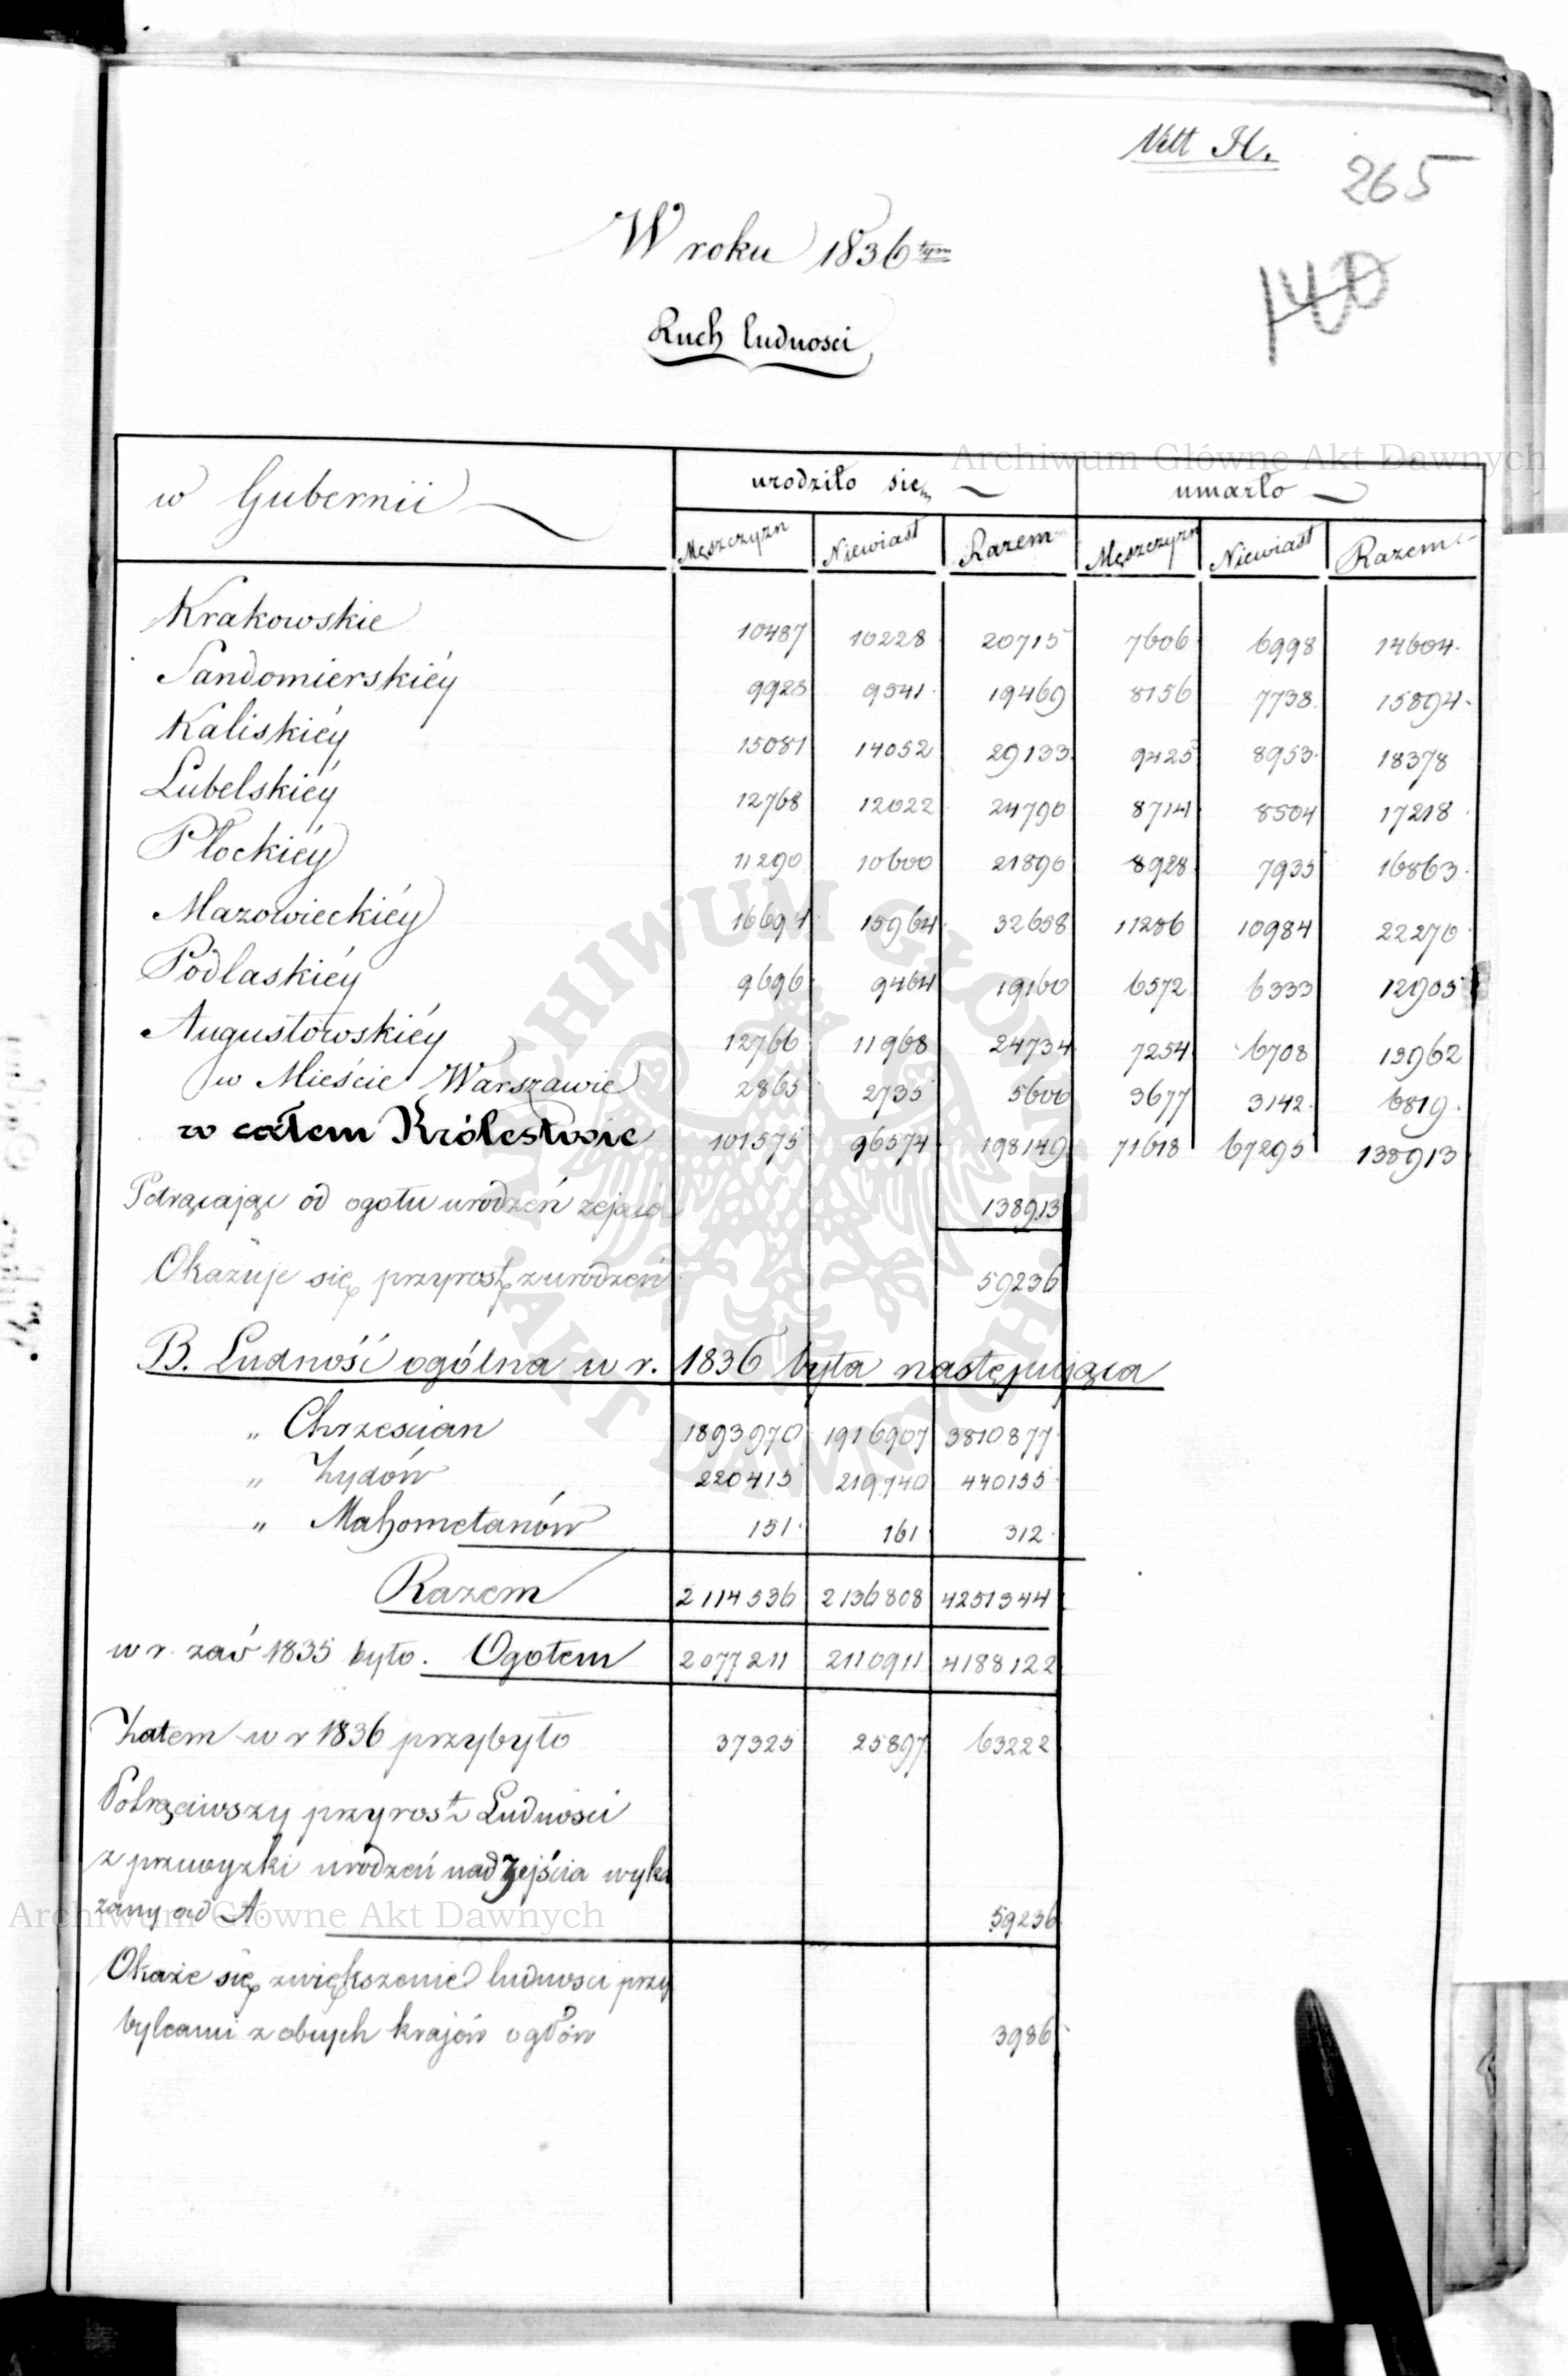 Litt H.
265
140
W roku 1836 tym
Ruch ludnosci
w Gubernii urodziło się umarło
Męszczyzn Niewiast Razem Męszczyzn Niewiast Razem
Krakowskie 10487 10228 20715 7606 6998 14604
Sandomierskiéy 9928 9541 19469 8156 7738 15894
Kaliskiéy 15081 14052 29133 9425 8953 18378
Lubelskiéy 12768 12022 24790 8714 8504 17218
Płockiéy 11290 10600 21890 8928 7935 16863
Mazowieckiéy 16694 15964 32658 11286 10984 22270
Podlaskiéy 9696 9464 19160 6572 6333 12905
Augustowskiéy 12766 11968 24734 7254 6708 13962
w Mieście Warszawie 2865 2735 5600 3677 3142 6819
w całem Królestwie 101575 96574 198149 71618 67295 138913
Potrącając od ogołu urodzeń zejścia 138913
Okazuje się przyrost z urodzeń 59236
B. Ludność ogólna w r. 1836 była następująca
„ Chrzescian 1893970 1916907 3810877
„ Żydów 220415 219740 440155
„ Mahometanów 151 161 312
Razem 2114536 2136808 4251344
w r. zaś 1835 było. Ogołem 2077211 2110911 4188122
Zatem w r 1836 przybyło 37325 25897 63222
Potrąciwszy przyrost Ludności
z przewyżki urodzeń nad Zejścia wyka
zany ad A. 59236
Okaże się zwiększenie ludnosci przy
bylcami z obcych krajów ogłów 3986
Archiwum Główne Akt Dawnych
ARCHIWUM GŁÓWNE AKT DAWNYCH
Archiwum Główne Akt Dawnych